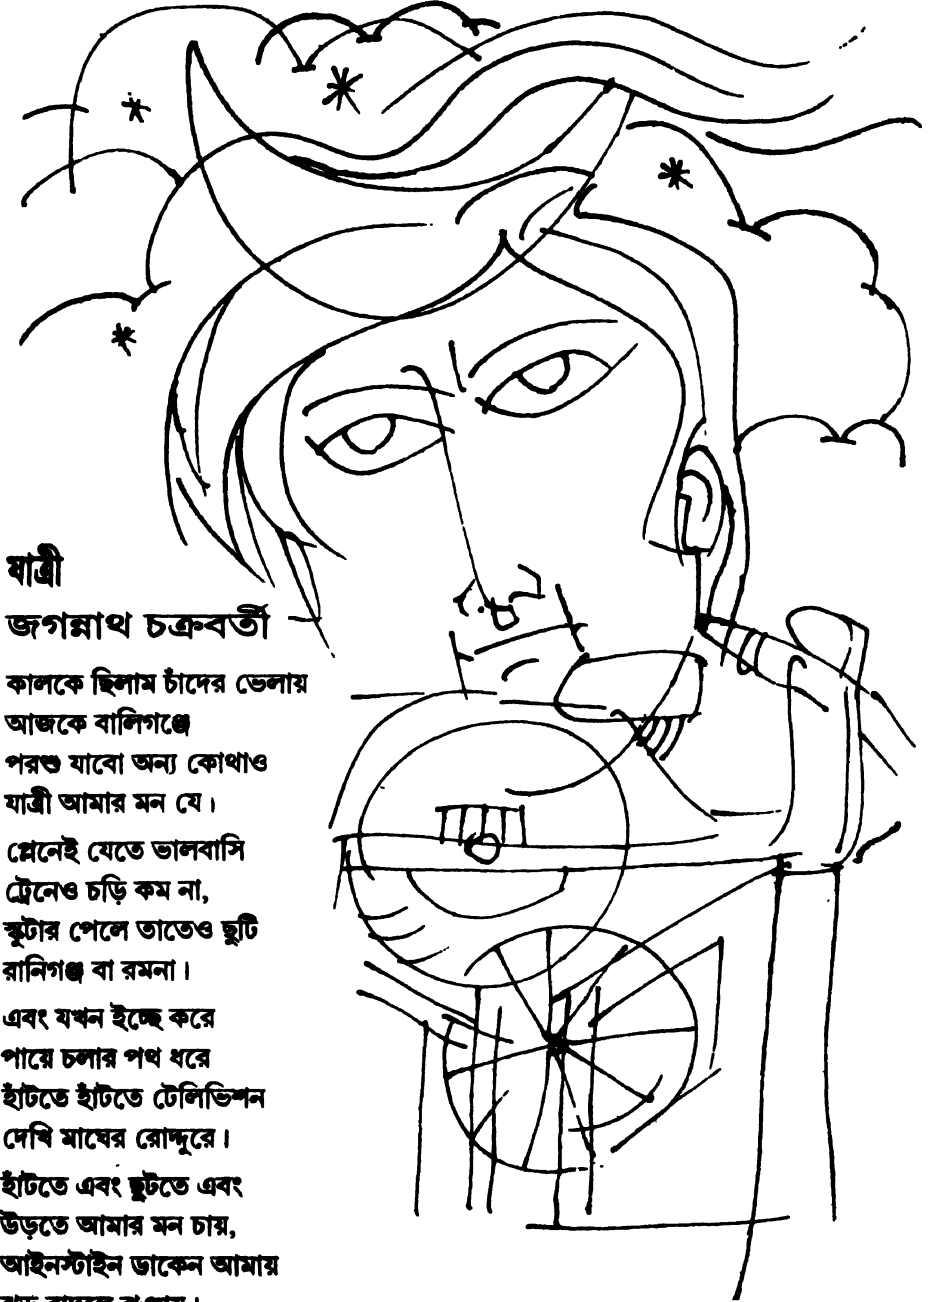 যাত্রী
জগন্নাথ চক্রবর্তী
কালকে ছিলাম চাঁদের ভেলায়
আজকে বালিগঞ্জে
পরশু যাবো অন্য কোথাও
যাত্রী আমার মন যে।
প্লেনেই যেতে ভালবাসি
ট্রেনেও চড়ি কম না,
স্কুটার পেলে তাতেও ছুটি
রানিগঞ্জ বা রমনা।
এবং যখন ইচ্ছে করে
পায়ে চলার পথ ধরে
হাঁটতে হাঁটতে টেলিভিশন
দেখি মাঘের রোদ্দুরে।
হাঁটতে এবং ছুটতে এবং
উড়তে আমার মন চায়,
আইনস্টাইন ডাকেন আমায়